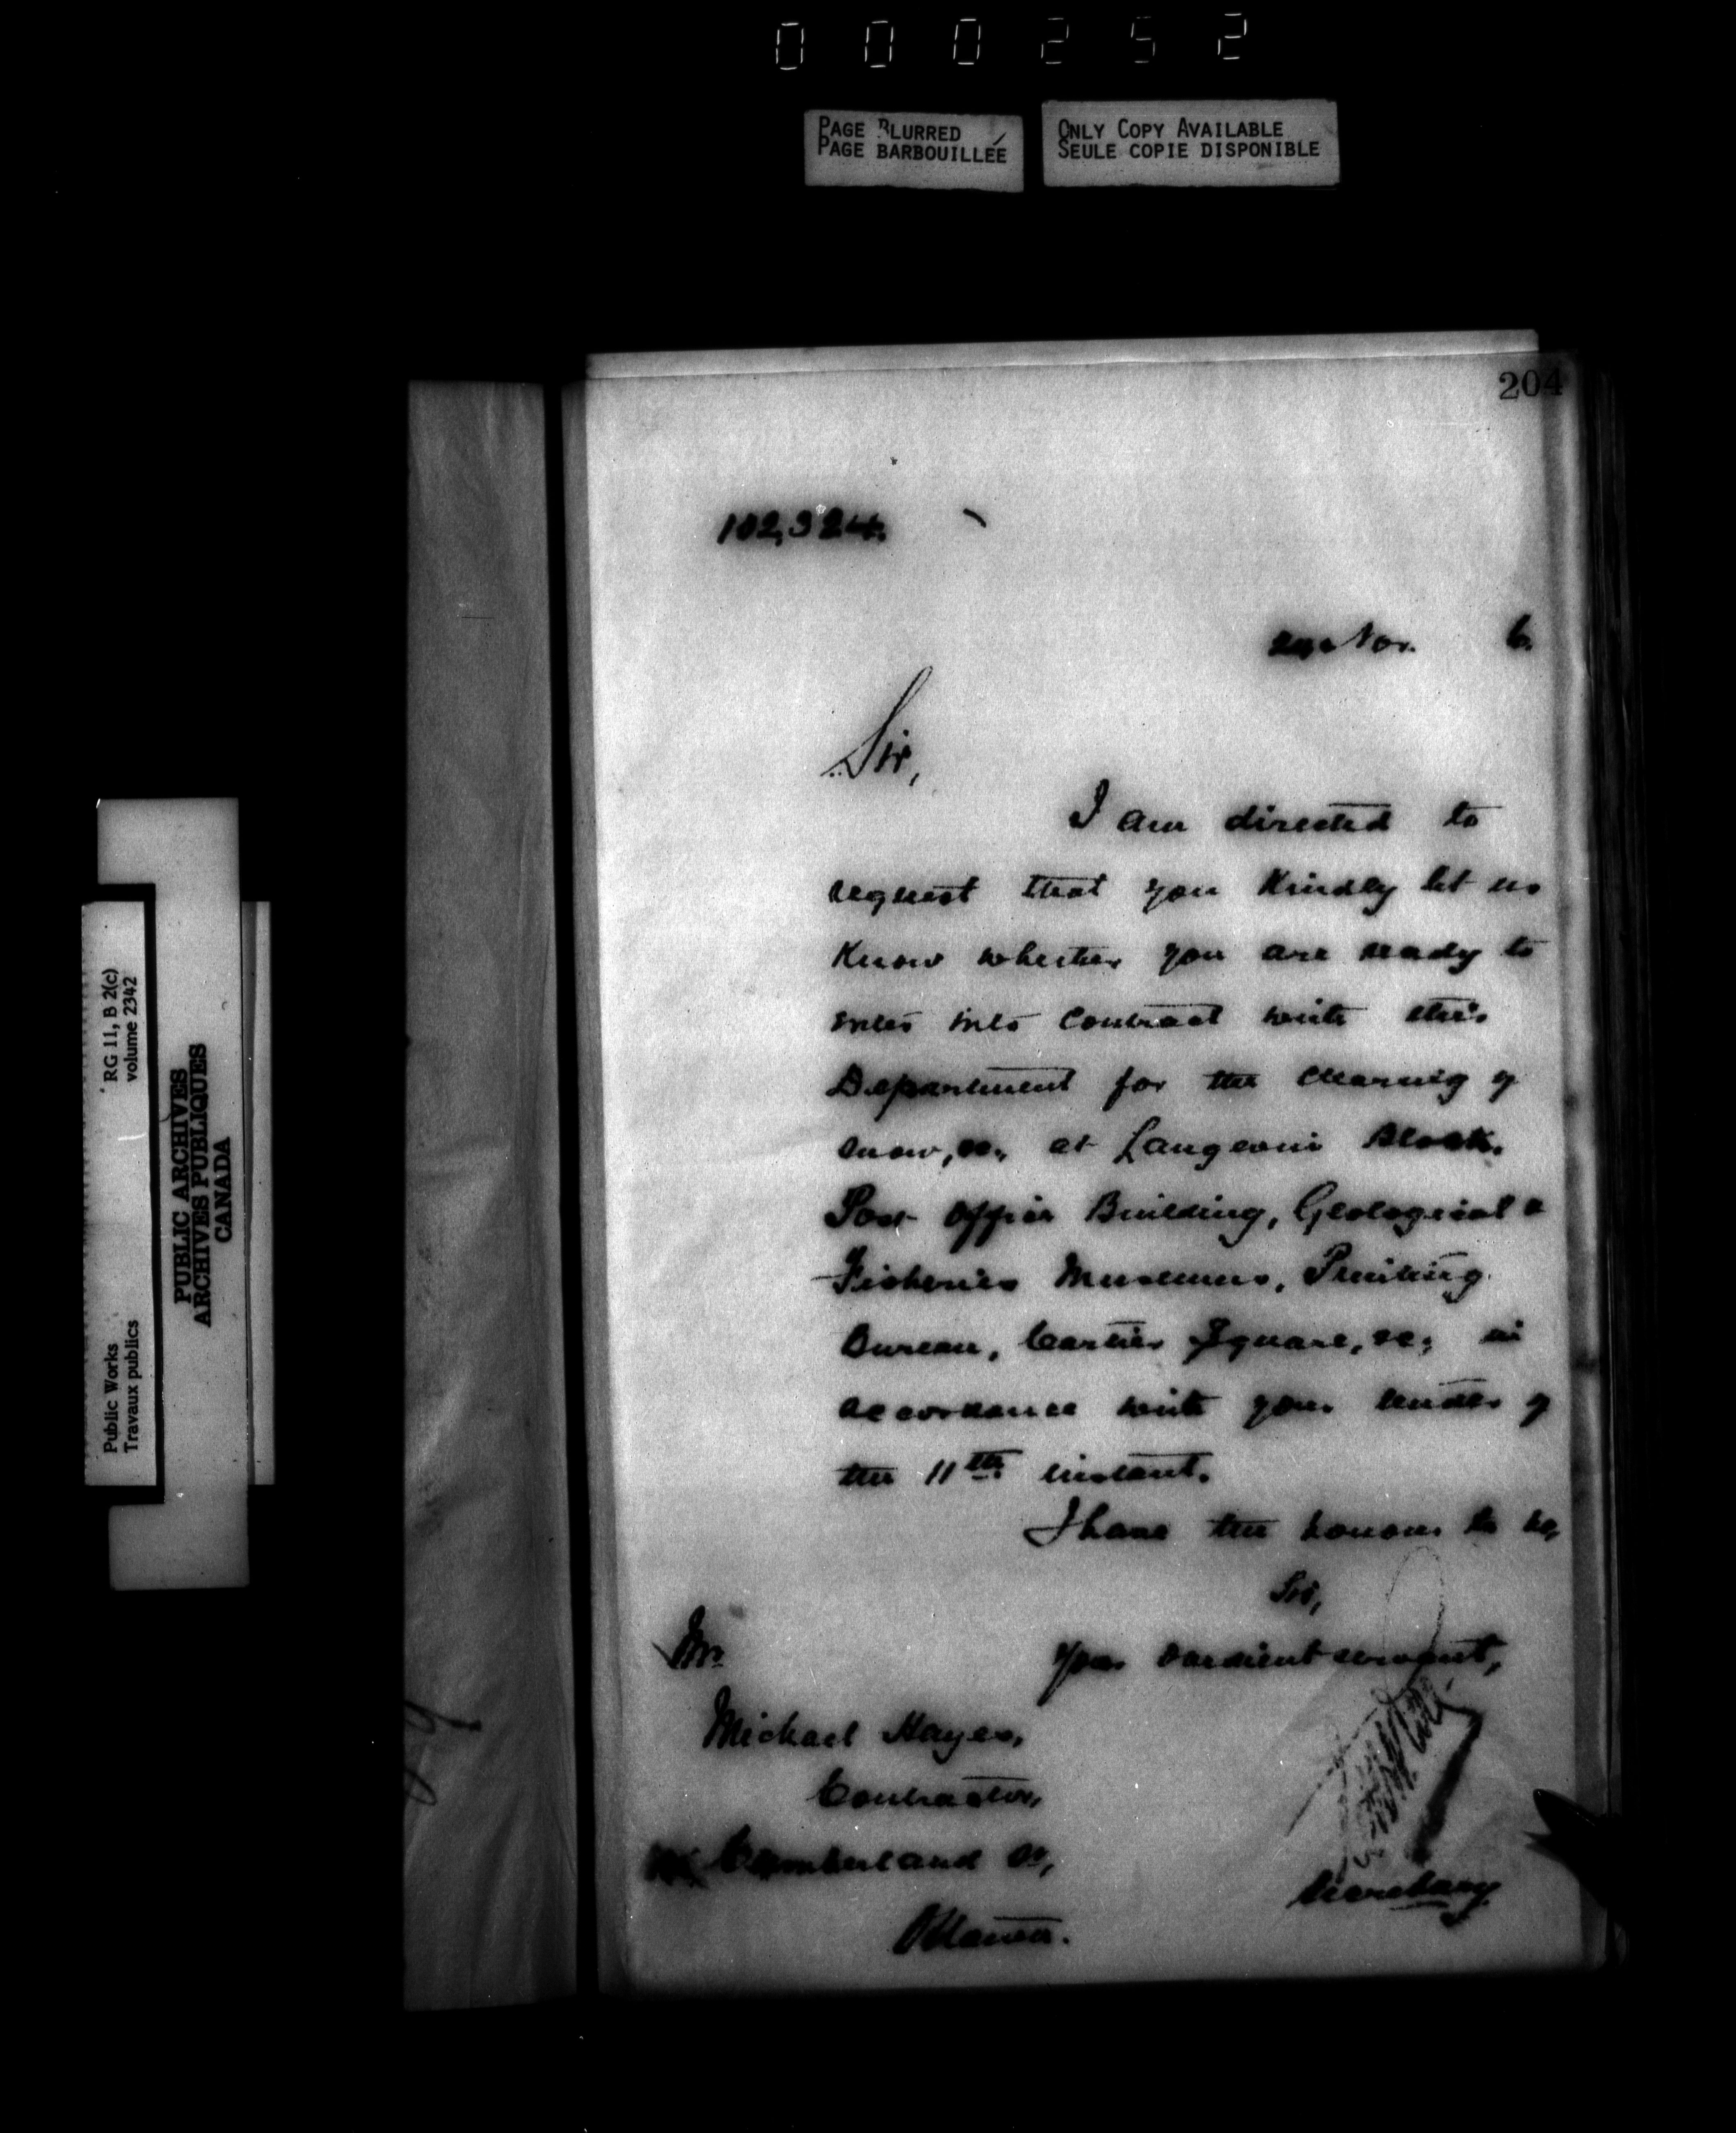 000252
PAGE BLURRED
PAGE BARBOUILLÉE
ONLY COPY AVAILABLE
SEULE COPIE DISPONIBLE
204
102,324.
Nov. 6.
Sir,
I am directed to
request that you kindly let us
know whether you are ready to
enter into contract with this
Department for the clearing of
snow, &c., at Langevin Block,
Post Office Building, Geological &
Fisheries Museums, Printing
Bureau, Cartier Square, &c; in
accordance with your tender of
the 11th instant.
I have the honour to be,
Sir,
Your obedient servant,
Secretary
Mr.
Michael Hayes,
Contractor,
Cumberland St,
Ottawa.
RG 11, B 2(c)
volume 2342
PUBLIC ARCHIVES
ARCHIVES PUBLIQUES
CANADA
Public Works
Travaux publics